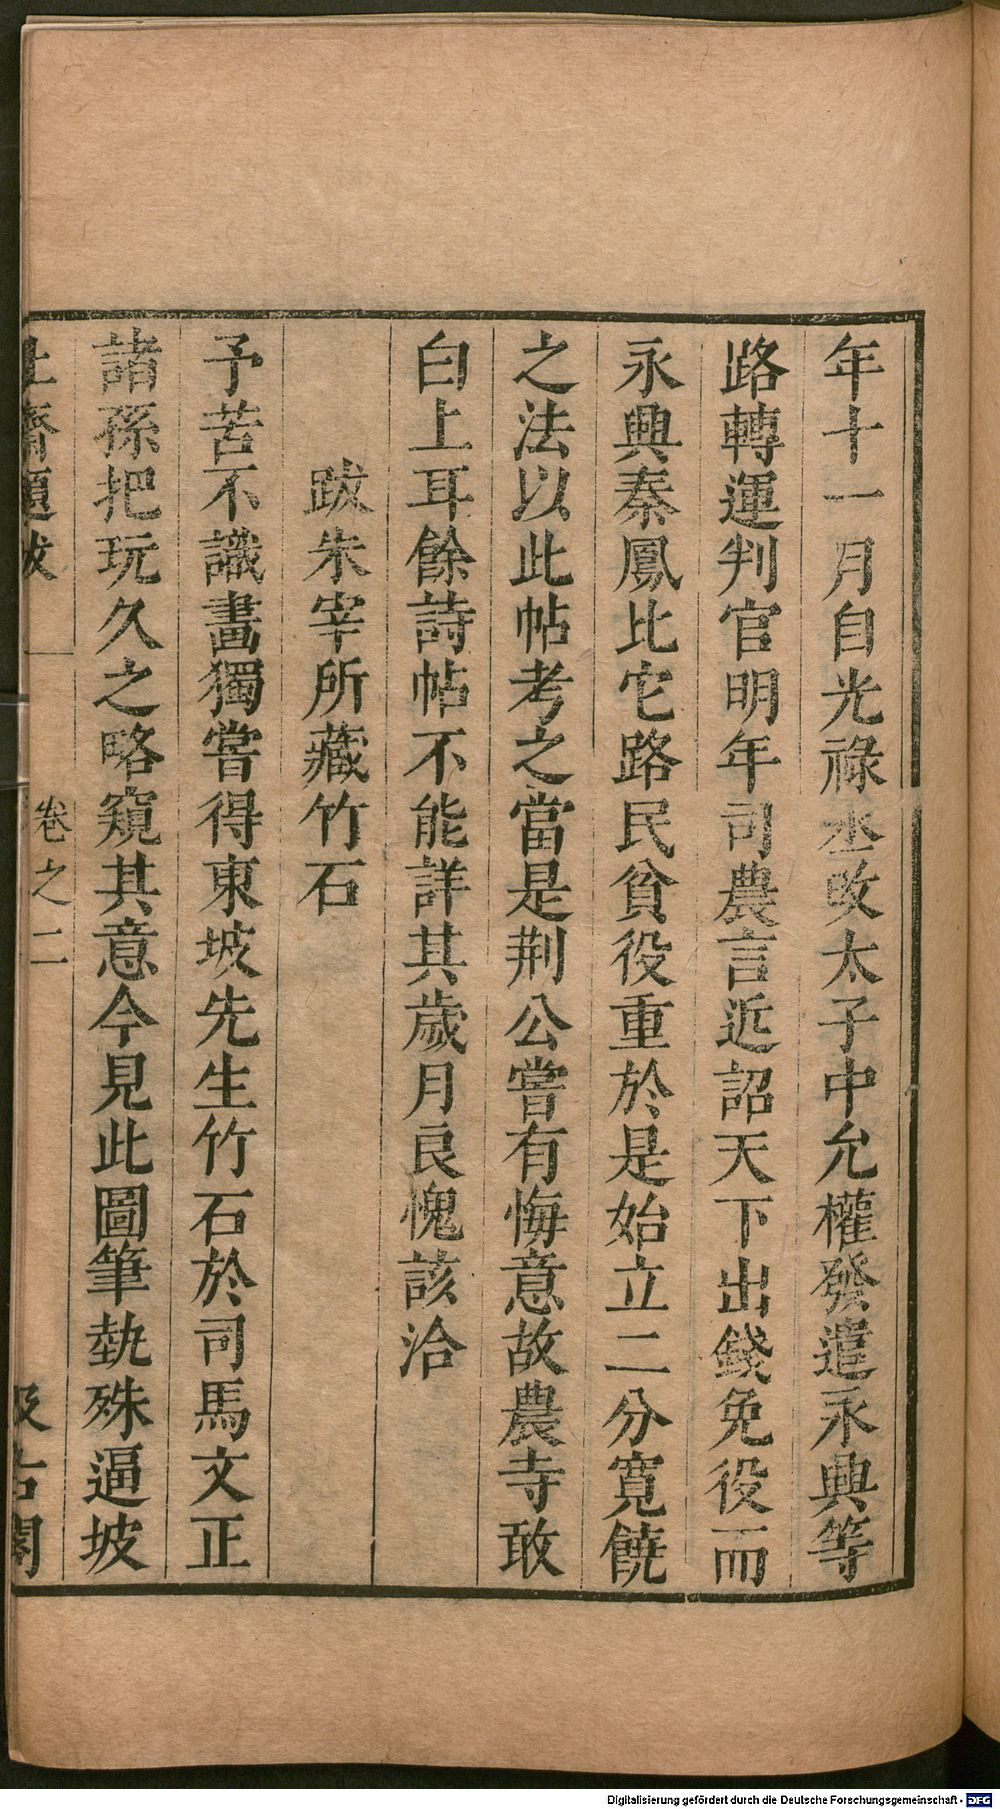 年十一月自光祿丞改太子中允權發遣永興等
路轉運判官明年司農言近詔天下出錢免役而
永興秦鳳比它路民貧役重於是始立二分寬饒
之法以此帖考之當是荆公嘗有悔意故農寺敢
白上耳餘詩帖不能詳其歲月良愧該洽
跋朱宰所藏竹石
予苦不識畫獨嘗得東坡先生竹石於司馬文正
諸孫把玩久之略窺其意今見此圖筆埶殊逼坡
止齋題跋 卷之二 汲古閣
Digitalisierung gefördert durch die Deutsche Forschungsgemeinschaft - DFG